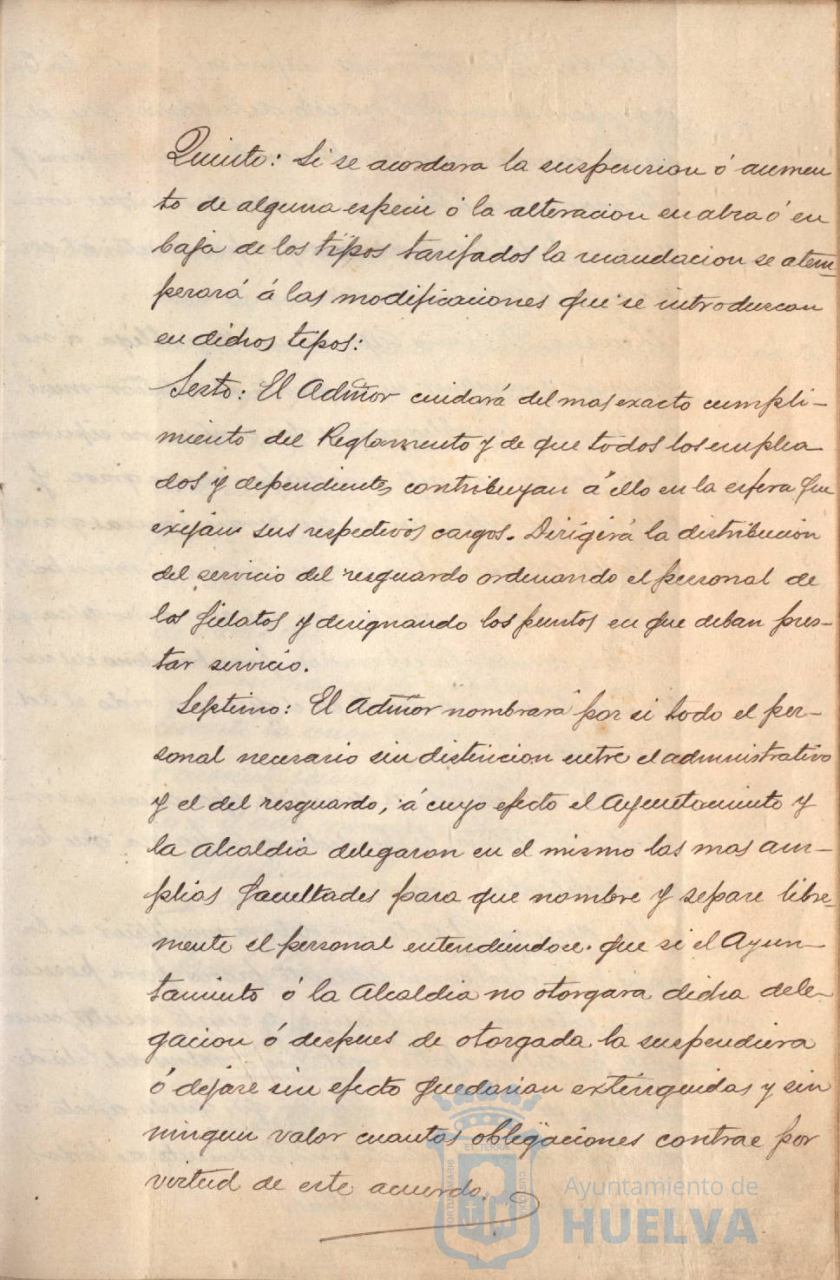 Quinto: Si se acordara la suspension ó aumen
to de alguna especie ó la alteracion en alza ó en
baja de los tipos tarifados la recaudacion se atem=
perará á las modificaciones que se introduzcan
en dichos tipos:
Sesto: El Admor cuidará del mas exacto cumpli-
miento del Reglamento y de que todos los emplea
dos y dependientes contribuyan á ello en la esfera que
exijan sus respectivos cargos. Dirigirá la distribucion
del servicio del resguardo ordenando el personal de
los fielatos y designando los puntos en que deban pres-
tar servicio.
Septimo: El Admor nombrará por si todo el per-
sonal necesario sin distincion entre el administrativo
y el del resguardo, á cuyo efecto el Ayuntamiento y
la Alcaldia delegaran en el mismo las mas am-
plias facultades para que nombre y separe libre-
mente el personal entendiendoce. que si el Ayun-
tamiento ó la Alcaldia no otorgara dicha dele-
gacion ó despues de otorgada la suspendiera
ó dejare sin efecto quedarian extinguidas y sin
ningun valor cuantas obligaciones contrae por
virtud de este acuerdo.
Ayuntamiento de
HUELVA